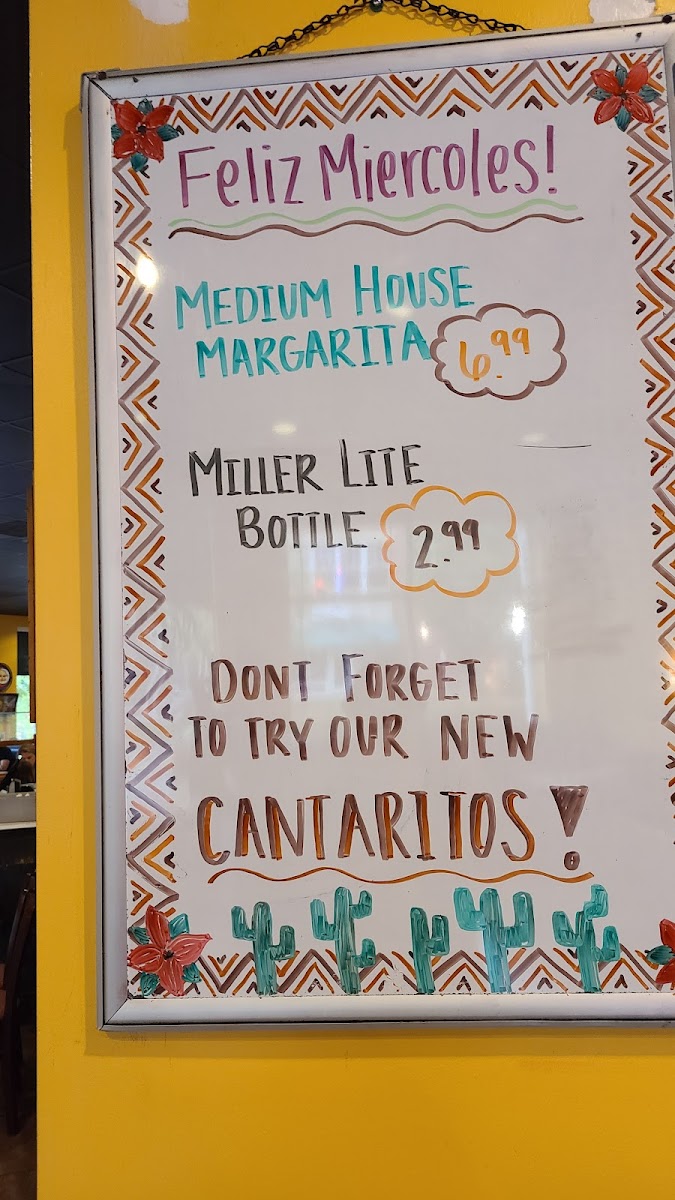 Feliz Miercoles!
MEDIUM HOUSE
MARGARITA 6.99
MILLER LITE
BOTTLE 2.99
DONT FORGET
TO TRY OUR NEW
CANTARITOS!